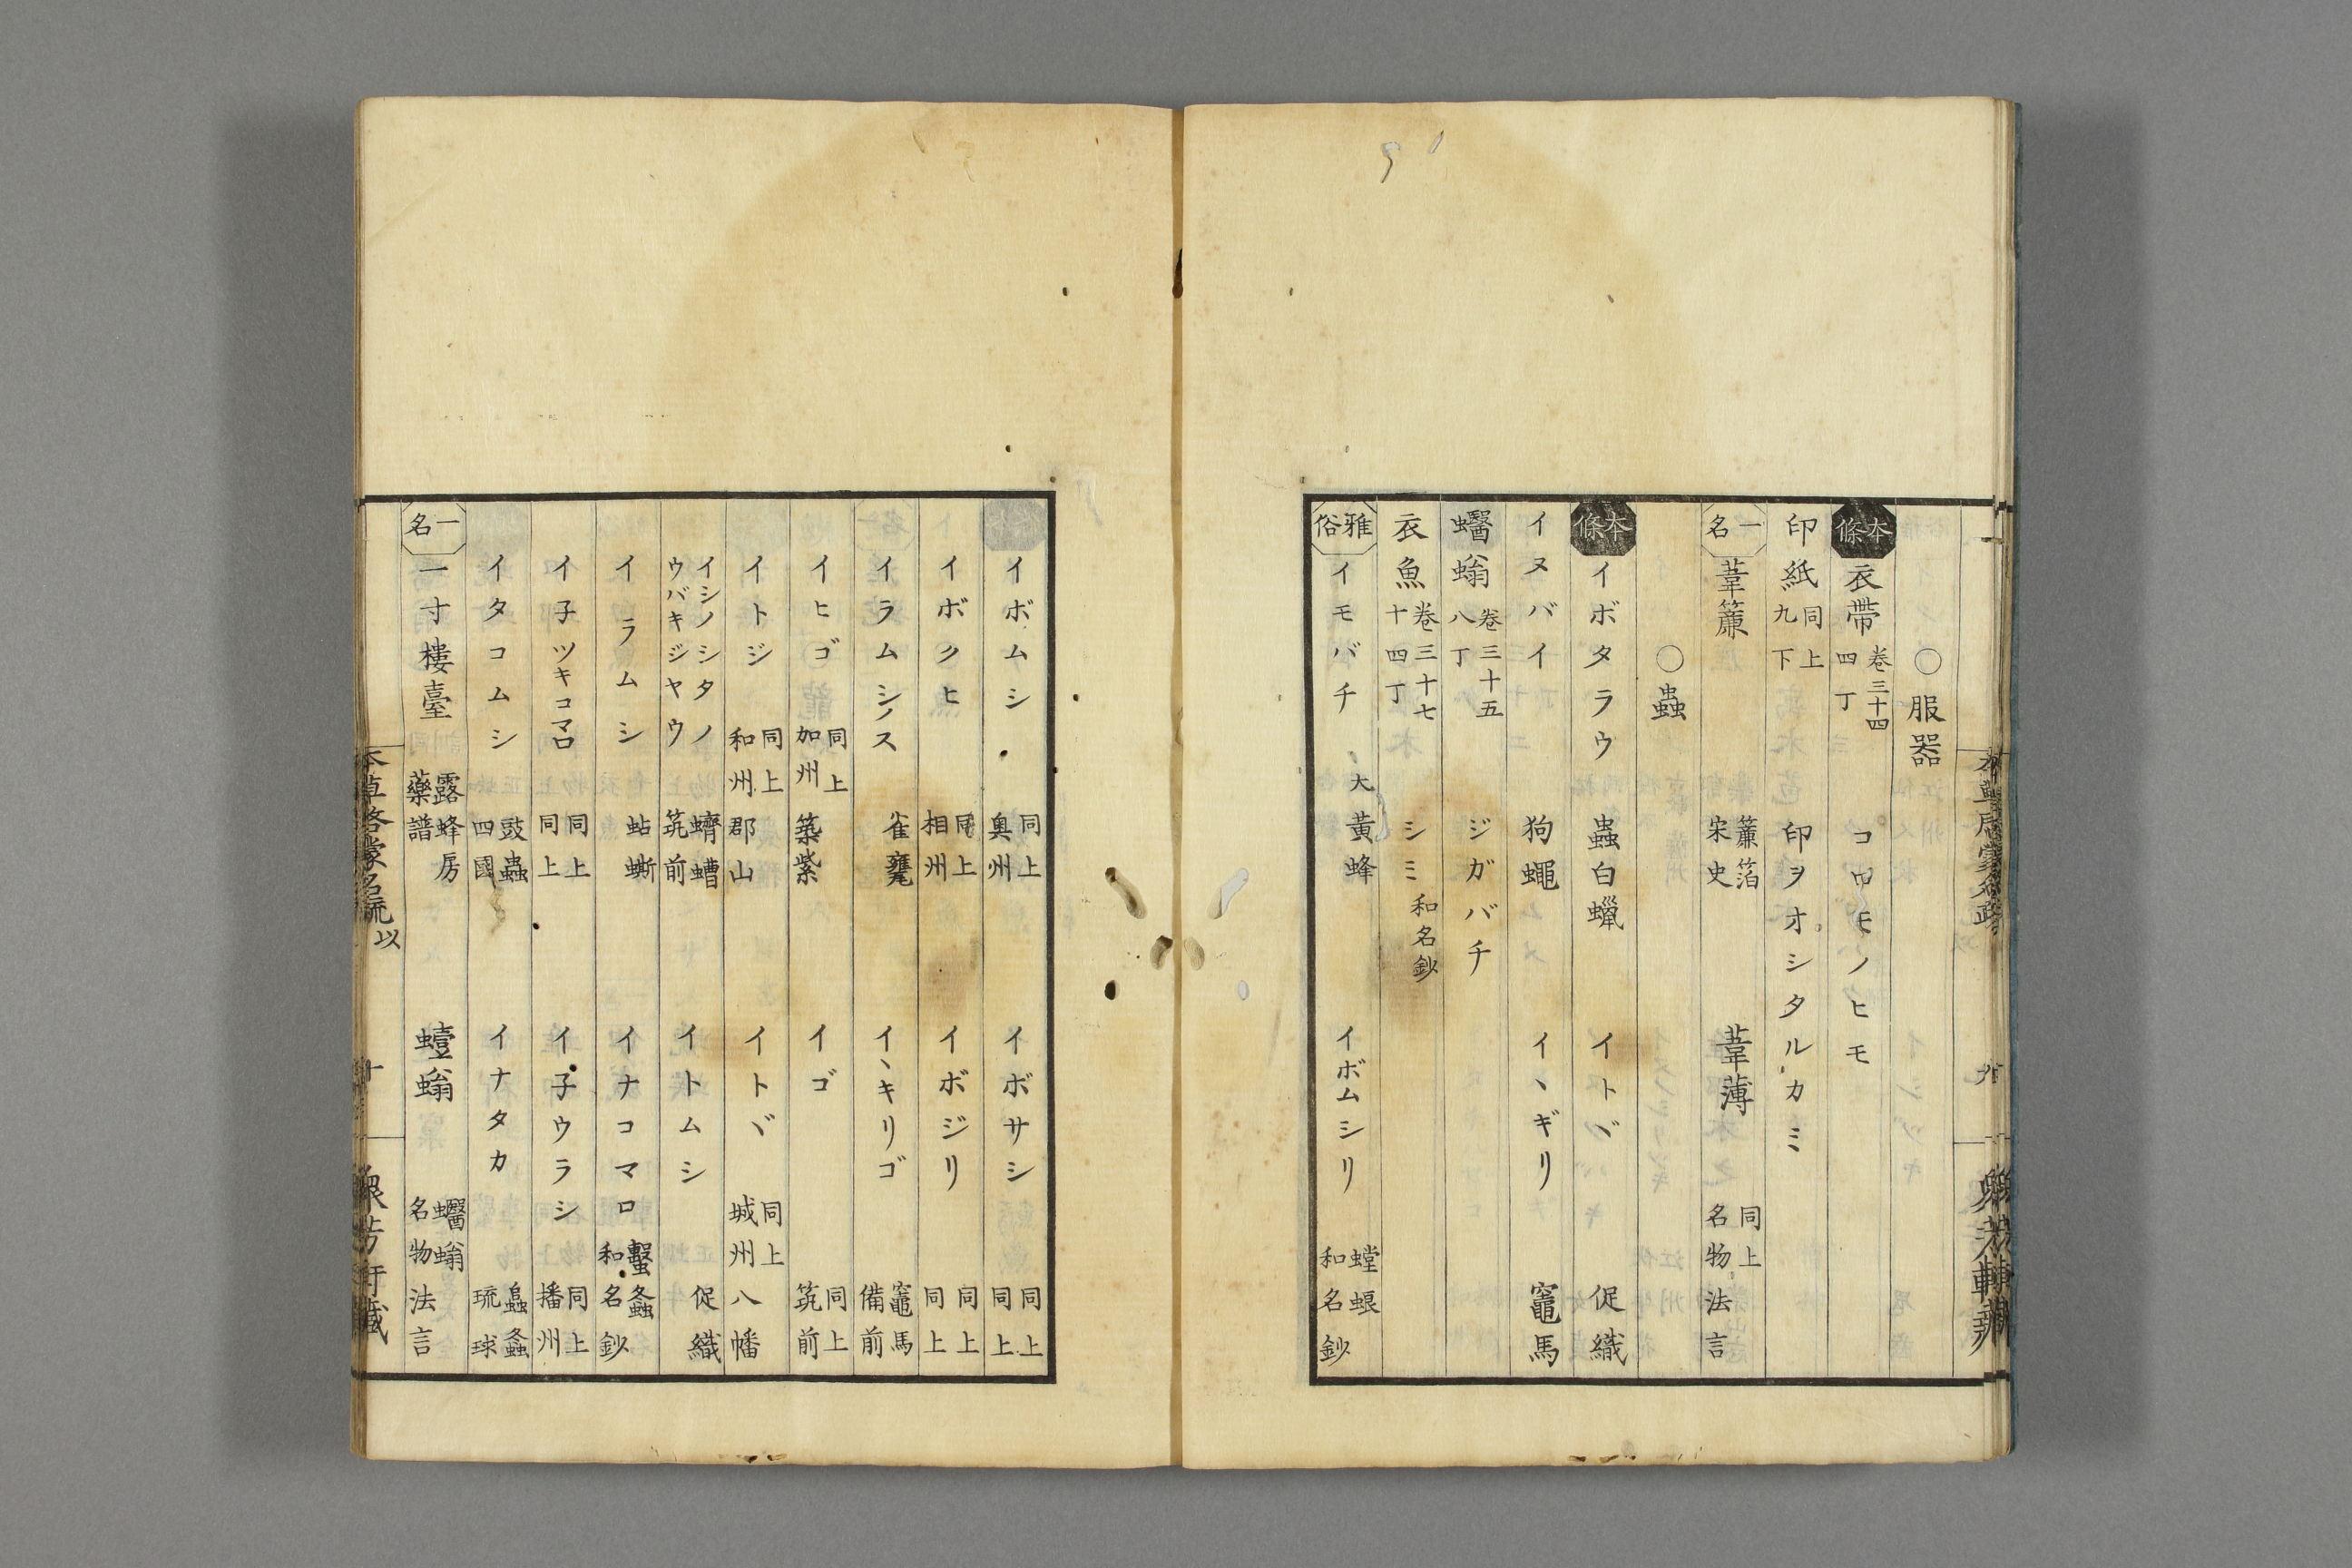 ○服器
本條 衣帶 卷三十四 四丁 コロモノヒモ
印紙 同上 九下 印ヲオシタルカミ
一名 葦簾 簾箔 宋史 葦薄 同上 名物法言
○蟲
本條 イボタラウ 蟲白蠟 イトヾ 促織
イヌバイ 狗蠅 イヽギリ 竈馬
蠮螉 卷三十五 八丁 ジガバチ
衣魚 卷三十七 十四丁 シミ 和名鈔
雅俗 イモバチ 大黃蜂 イボムシリ 螳螂 和名鈔
イボムシ 同上 奥州 イボサシ 同上 同上
イボクヒ 同上 相州 イボジリ 同上 同上
イラムシノス 雀甕 イヽキリゴ 竈馬 備前
イヒゴ 同上 加州 築紫 イゴ 同上 筑前
イトジ 同上 和州 郡山 イトヾ 同上 城州 八幡
イシノシタノウバキジヤウ 蠐螬 筑前 イトムシ 促織
イラムシ 蛅蟴 イナコマロ 蟿螽 和名鈔
イ子ツキコマロ 同上 同上 イ子ウラシ 同上 播州
イタコムシ 豉蟲 四國 イナタカ 𧒂螽 琉球
一名 一寸樓臺 露蜂房 藥譜 螠螉 蠮螉 名物法言
本草啓蒙名疏 以 十